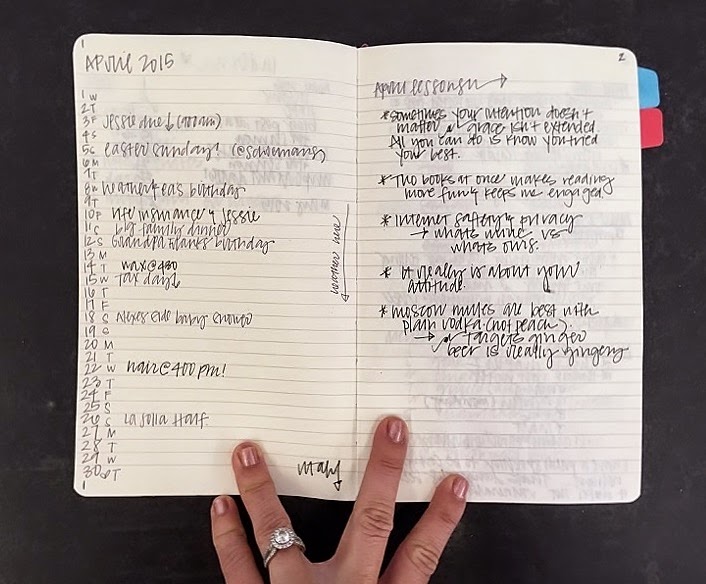 1
APRIL 2015
1 W
2 T
3 F Jessie due ↓ (
4 S
5 S easter sunday! (@
6 M
7 T
8 W birthday
9 T
10 F life insurance & Jessie
11 S big family dinner
12 S Grandpa Hank's birthday
13 M
14 T wax @ 430
15 W Tax day!
16 T
17 F
18 S baby shower
19 S
20 M
21 T
22 W hair @ 400 pm!
23 T
24 F
25 S
26 S La Jolla Half
27 M
28 T
29 W
30 T
1
weather here
2
April lessons →
* sometimes your intention doesn't
matter & grace isn't extended.
All you can do is know you tried
your best.
* Two books at once makes reading
more fun & keeps me engaged.
* Internet safety & privacy
→ whats mine vs
whats ours.
* It really is about your
attitude.
* moscow mules are best with
plain vodka (not peach).
→ & Targets ginger
beer is really gingery